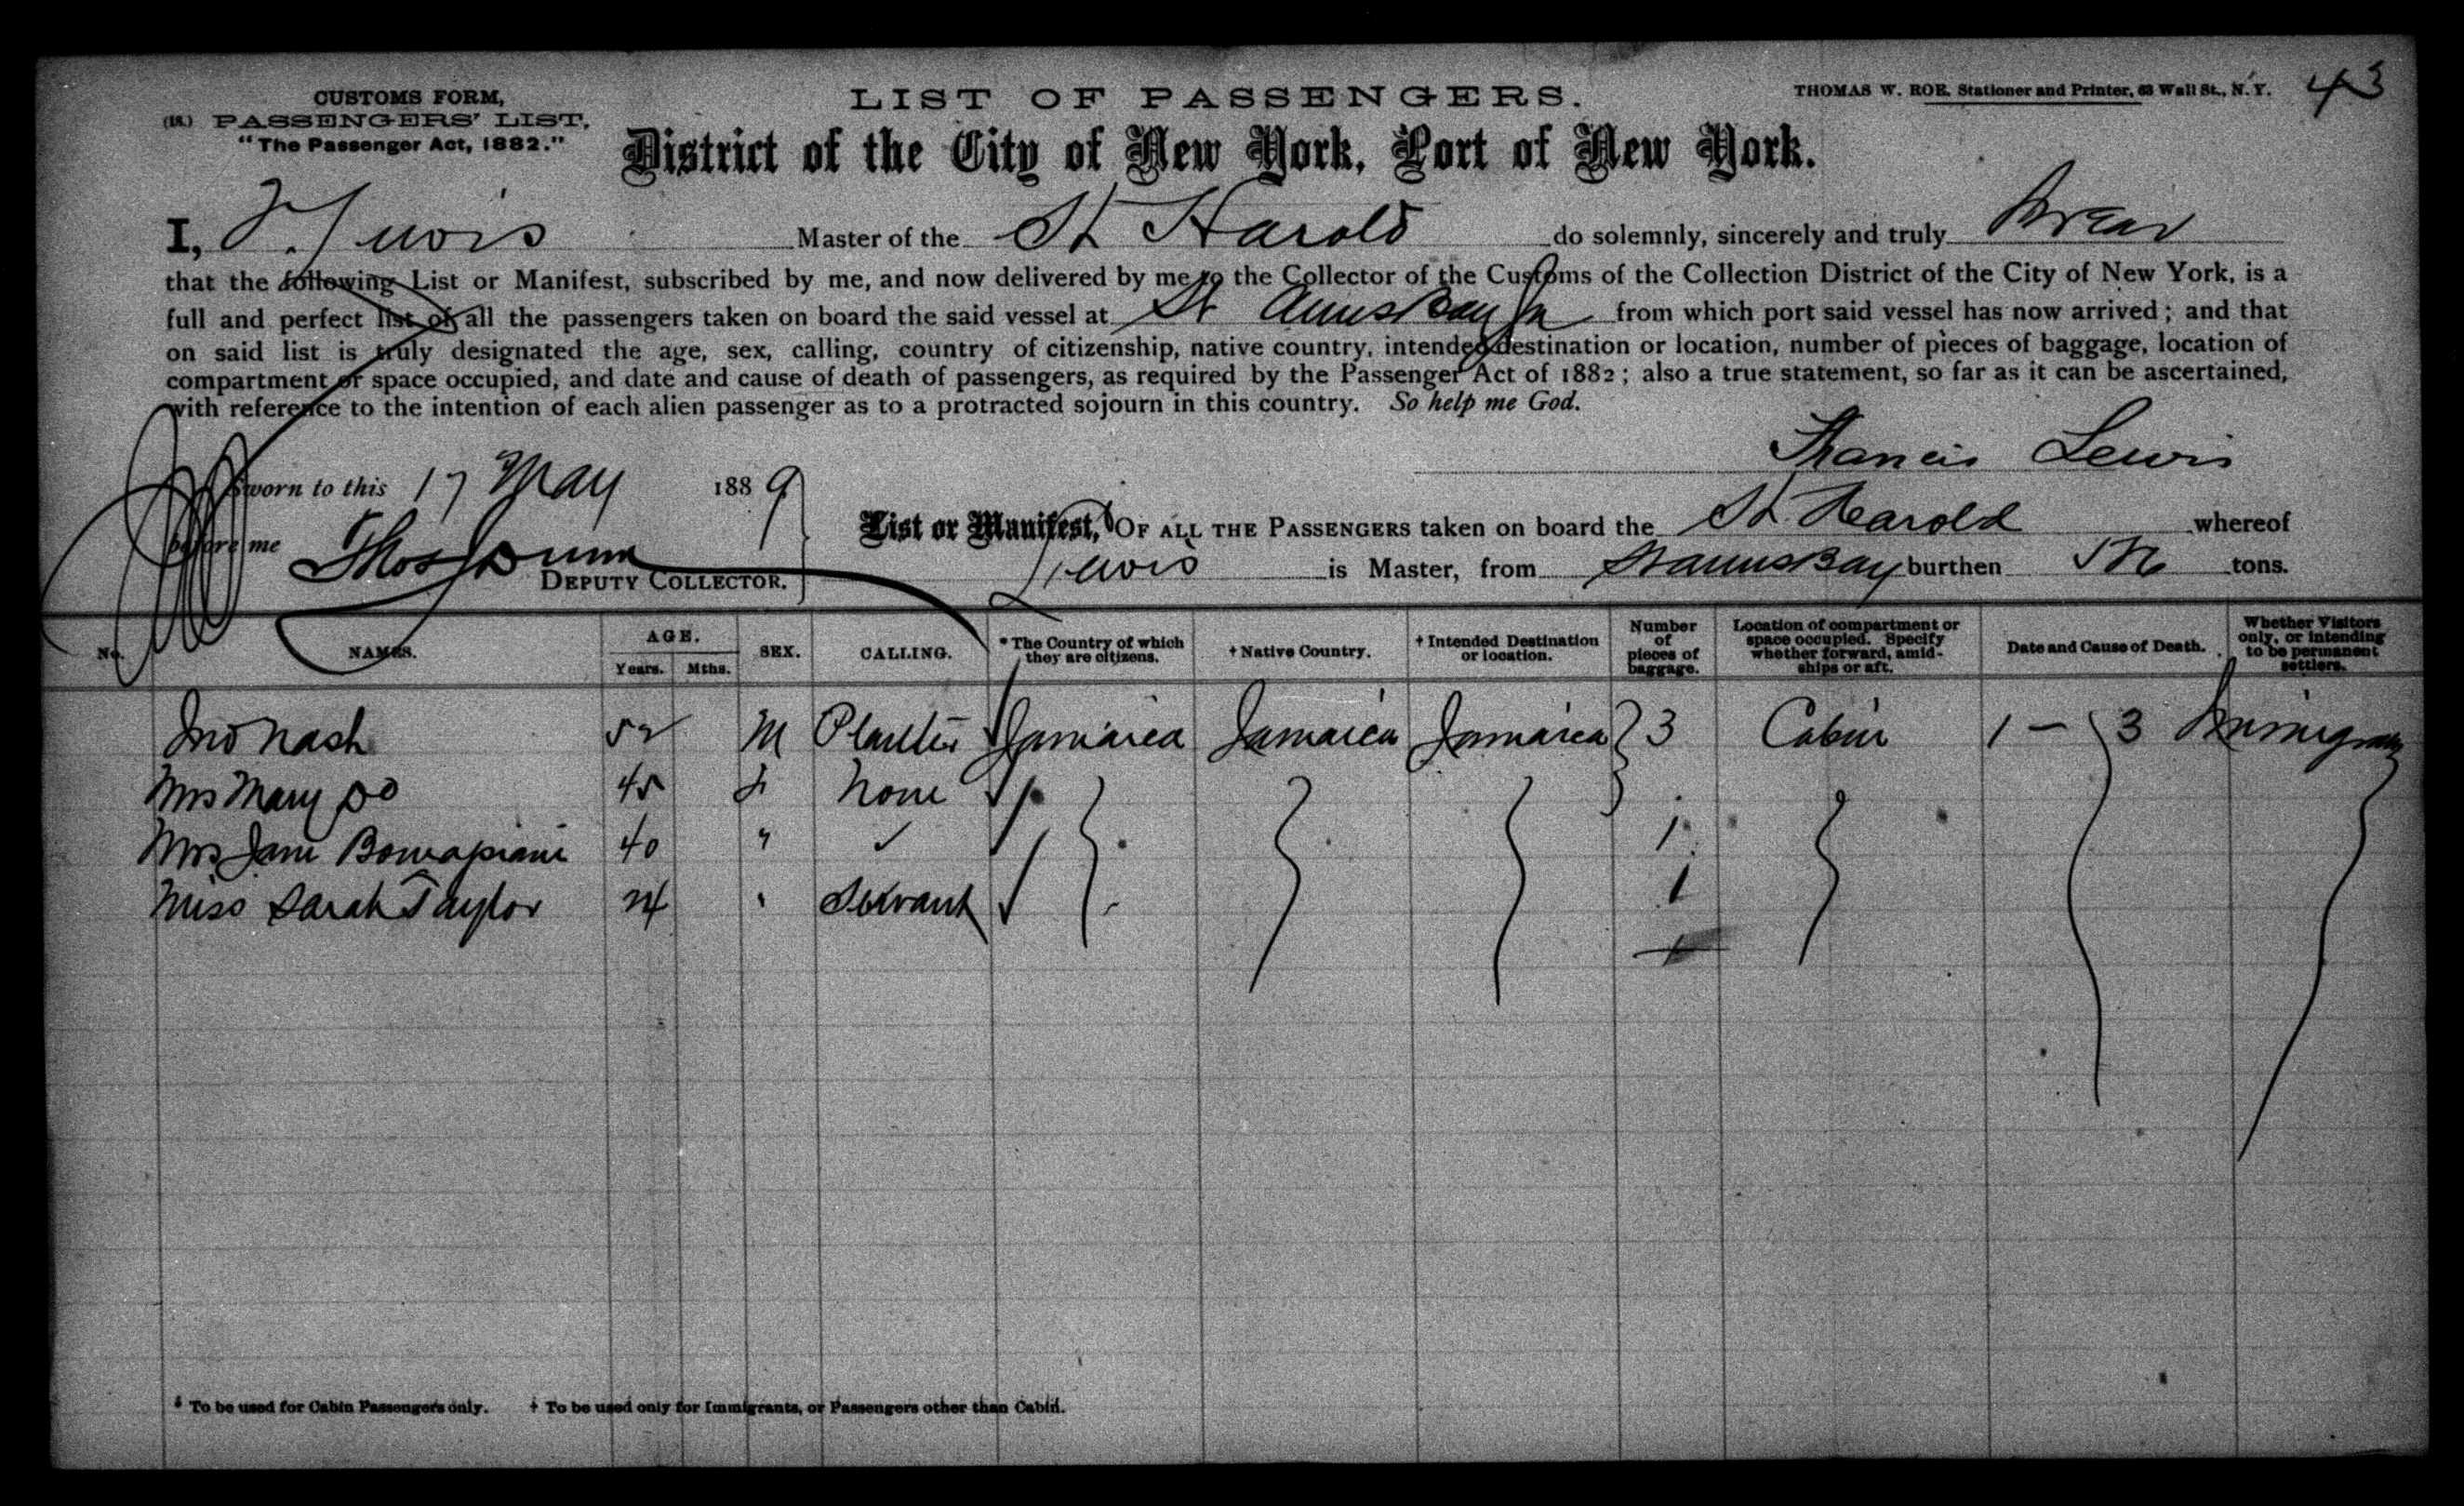 CUSTOMS FORM,
(18.) PASSENGERS' LIST,
"The Passenger Act, 1882."
LIST OF PASSENGERS.
THOMAS W. ROE, Stationer and Printer, 63 Wall St., N.Y.
43
District of the City of New York, Port of New York.
I, F. Lewis Master of the St Harold do solemnly, sincerely and truly Swear
that the following List or Manifest, subscribed by me, and now delivered by me to the Collector of the Customs of the Collection District of the City of New York, is a
full and perfect list of all the passengers taken on board the said vessel at St Anns Bay Ja from which port said vessel has now arrived; and that
on said list is truly designated the age, sex, calling, country of citizenship, native country, intended destination or location, number of pieces of baggage, location of
compartment or space occupied, and date and cause of death of passengers, as required by the Passenger Act of 1882; also a true statement, so far as it can be ascertained,
with reference to the intention of each alien passenger as to a protracted sojourn in this country. So help me God.
Francis Lewis
Sworn to this 17 May 1889
before me Thos Dunn
DEPUTY COLLECTOR.
List or Manifest, OF ALL THE PASSENGERS taken on board the St. Harold whereof
Lewis is Master, from St Anns Bay burthen tons.
No. NAMES. AGE. Years. Mths. SEX. CALLING. * The Country of which they are citizens. † Native Country. † Intended Destination or location. Number of pieces of baggage. Location of compartment or space occupied. Specify whether forward, amidships or aft. Date and Cause of Death. Whether Visitors only, or intending to be permanent settlers.
Jno Nash 52 M Planter Jamaica Jamaica Jamaica 3 Cabin 1 - 3
Mrs Mary Do 45 f None
Mrs Jane 40 " 1
Miss Sarah Taylor 24 " Servant 1
* To be used for Cabin Passengers only. † To be used only for Immigrants, or Passengers other than Cabin.